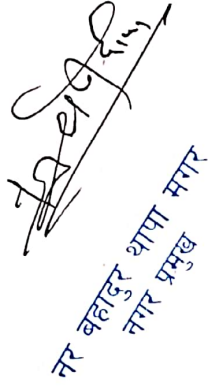 नर बहादुर थापा मगर
नगर प्रमुख